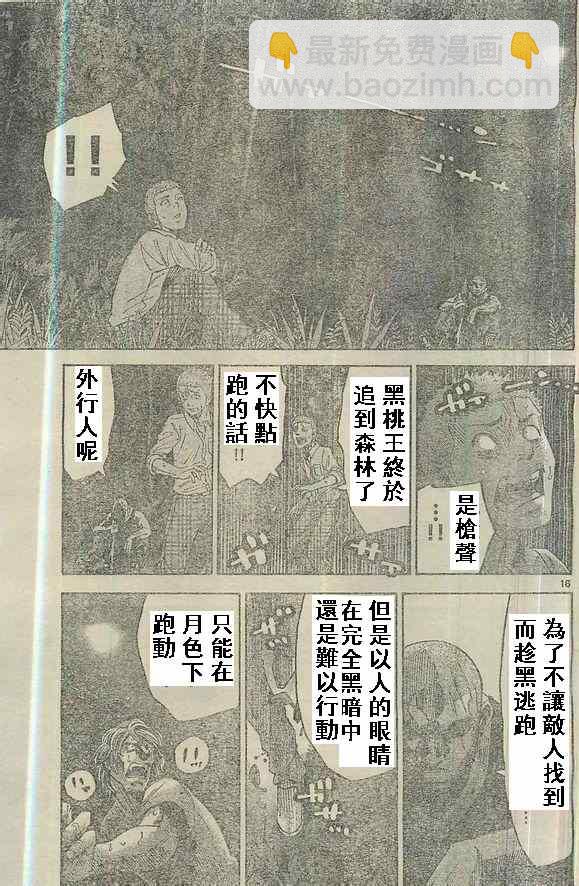 最新免費漫画
www.baozimh.com
!!
是槍聲
…!!
黑桃王終於
追到森林了
不快點
跑的話!!
外行人呢
16
為了不讓敵人找到
而趁黑逃跑
但是以人的眼睛
在完全黑暗中
還是難以行動
只能在
月色下
跑動
!!
!!